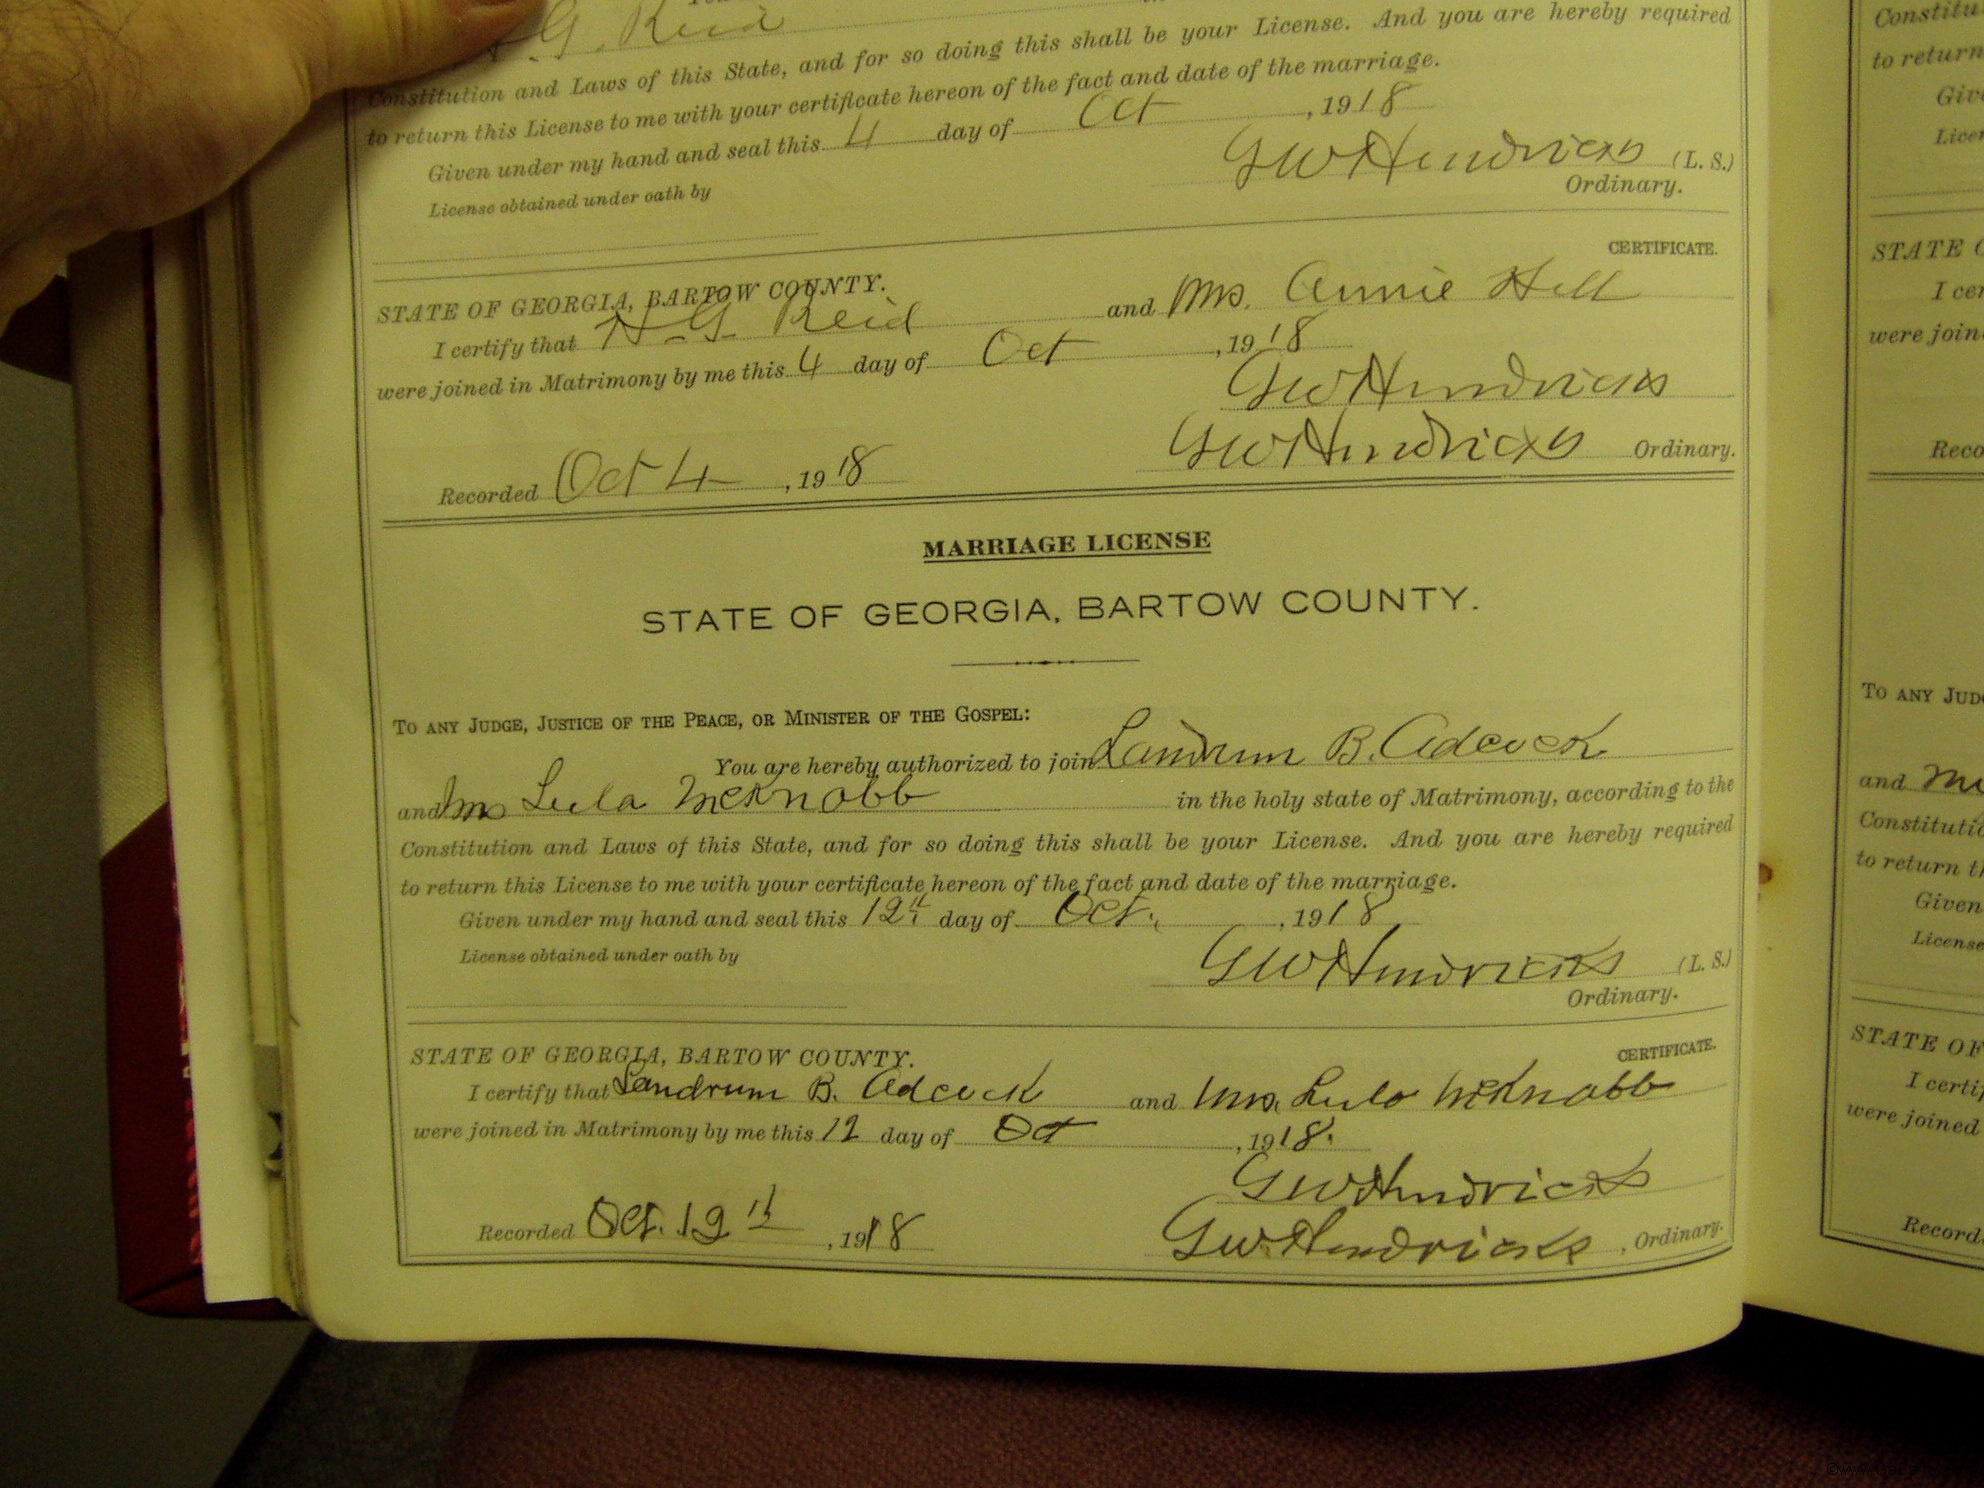 G. Reid
Constitution and Laws of this State, and for so doing this shall be your License. And you are hereby required
to return this License to me with your certificate hereon of the fact and date of the marriage.
Given under my hand and seal this 4 day of Oct , 1918
GW Hendricks (L. S.)
Ordinary.
License obtained under oath by
CERTIFICATE.
STATE OF GEORGIA, BARTOW COUNTY.
I certify that H G Reid and Mrs. Annie Hill
were joined in Matrimony by me this 4 day of Oct , 1918
GW Hendricks
Recorded Oct 4 , 1918 GW Hendricks Ordinary.
MARRIAGE LICENSE
STATE OF GEORGIA, BARTOW COUNTY.
To any Judge, Justice of the Peace, or Minister of the Gospel:
You are hereby authorized to join Landrum B. Adcock
and Mrs Lula McKnabb in the holy state of Matrimony, according to the
Constitution and Laws of this State, and for so doing this shall be your License. And you are hereby required
to return this License to me with your certificate hereon of the fact and date of the marriage.
Given under my hand and seal this 12th day of Oct. , 1918
License obtained under oath by
GW Hendricks (L. S.)
Ordinary.
STATE OF GEORGIA, BARTOW COUNTY. CERTIFICATE.
I certify that Landrum B. Adcock and Mrs. Lula McKnabb
were joined in Matrimony by me this 12 day of Oct , 1918.
GW Hendricks
Recorded Oct. 12th , 1918 GW. Hendricks , Ordinary.
to return
STATE
were
To any
and
to return
Given
License
STATE OF
were joined